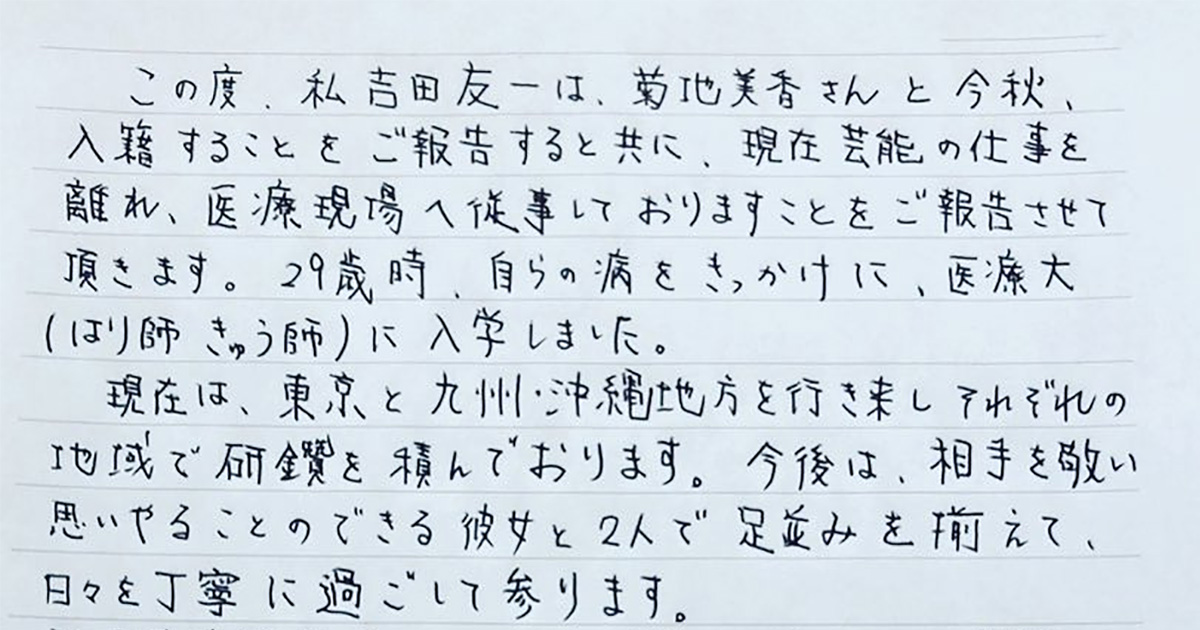 この度、私吉田友一は、菊地美香さんと今秋、
入籍することをご報告すると共に、現在芸能の仕事を
離れ、医療現場へ従事しておりますことをご報告させて
頂きます。29歳時、自らの病をきっかけに、医療大
(はり師 きゅう師)に入学しました。
現在は、東京と九州・沖縄地方を行き来しそれぞれの
地域で研鑽を積んでおります。今後は、相手を敬い
思いやることのできる彼女と2人で足並みを揃えて、
日々を丁寧に過ごして参ります。